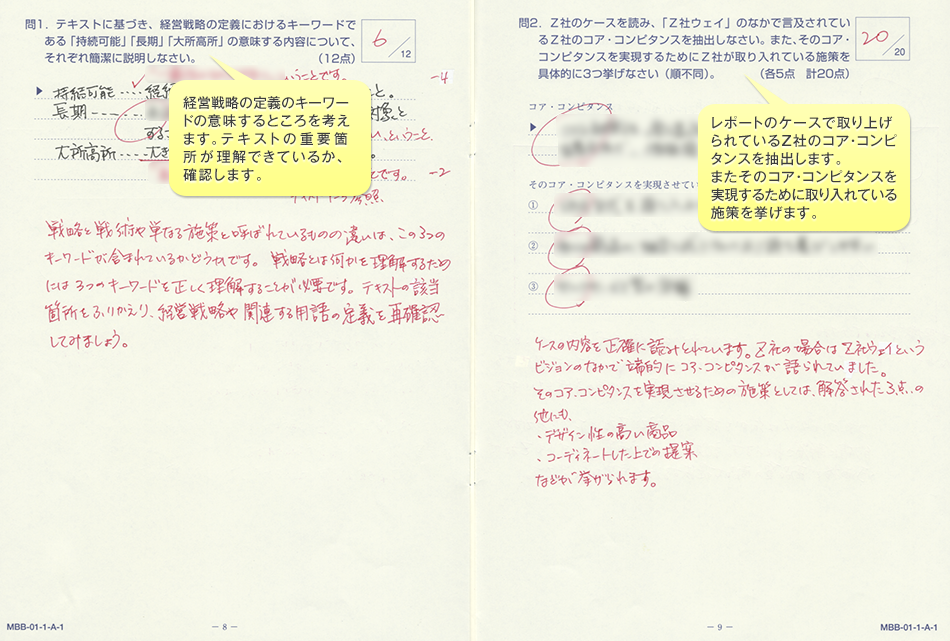 問1．テキストに基づき、経営戦略の定義におけるキーワードで
ある「持続可能」「長期」「大所高所」の意味する内容について、
それぞれ簡潔に説明しなさい。　（12点）
6／12
いうことです。
−4
▶ 持続可能 ‥‥ 経
と。
長期 ----
対象と
する
い、ということ、
大所高所 ‥‥ 大き
とです。 −2
参照
経営戦略の定義のキーワー
ドの意味するところを考え
ます。テキストの重要箇
所が理解できているか、
確認します。
戦略と戦術や単なる施策と呼ばれているものの違いは、この3つの
キーワードが含まれているかどうかです。戦略とは何かを理解するため
には3つのキーワードを正しく理解することが必要です。テキストの該当
箇所をふりかえり、経営戦略や関連する用語の定義を再確認
してみましょう。
MBB-01-1-A-1
― 8 ―
問2．Z社のケースを読み、「Z社ウェイ」のなかで言及されてい
るZ社のコア・コンピタンスを抽出しなさい。また、そのコア・
コンピタンスを実現するためにZ社が取り入れている施策を
具体的に3つ挙げなさい（順不同）。　（各5点　計20点）
20／20
コア・コンピタンス
▶
そのコア・コンピタンスを実現させてい
①
②
③
レポートのケースで取り上げ
られているZ社のコア・コンピ
タンスを抽出します。
またそのコア・コンピタンスを
実現するために取り入れている
施策を挙げます。
ケースの内容を正確に読みとれています。Z社の場合はZ社ウェイという
ビジョンのなかで端的にコア・コンピタンスが語られていました。
そのコア・コンピタンスを実現させるための施策としては、解答された3点の
他にも、
・デザイン性の高い商品
・コーディネートした上での提案
などが挙げられます。
― 9 ―
MBB-01-1-A-1